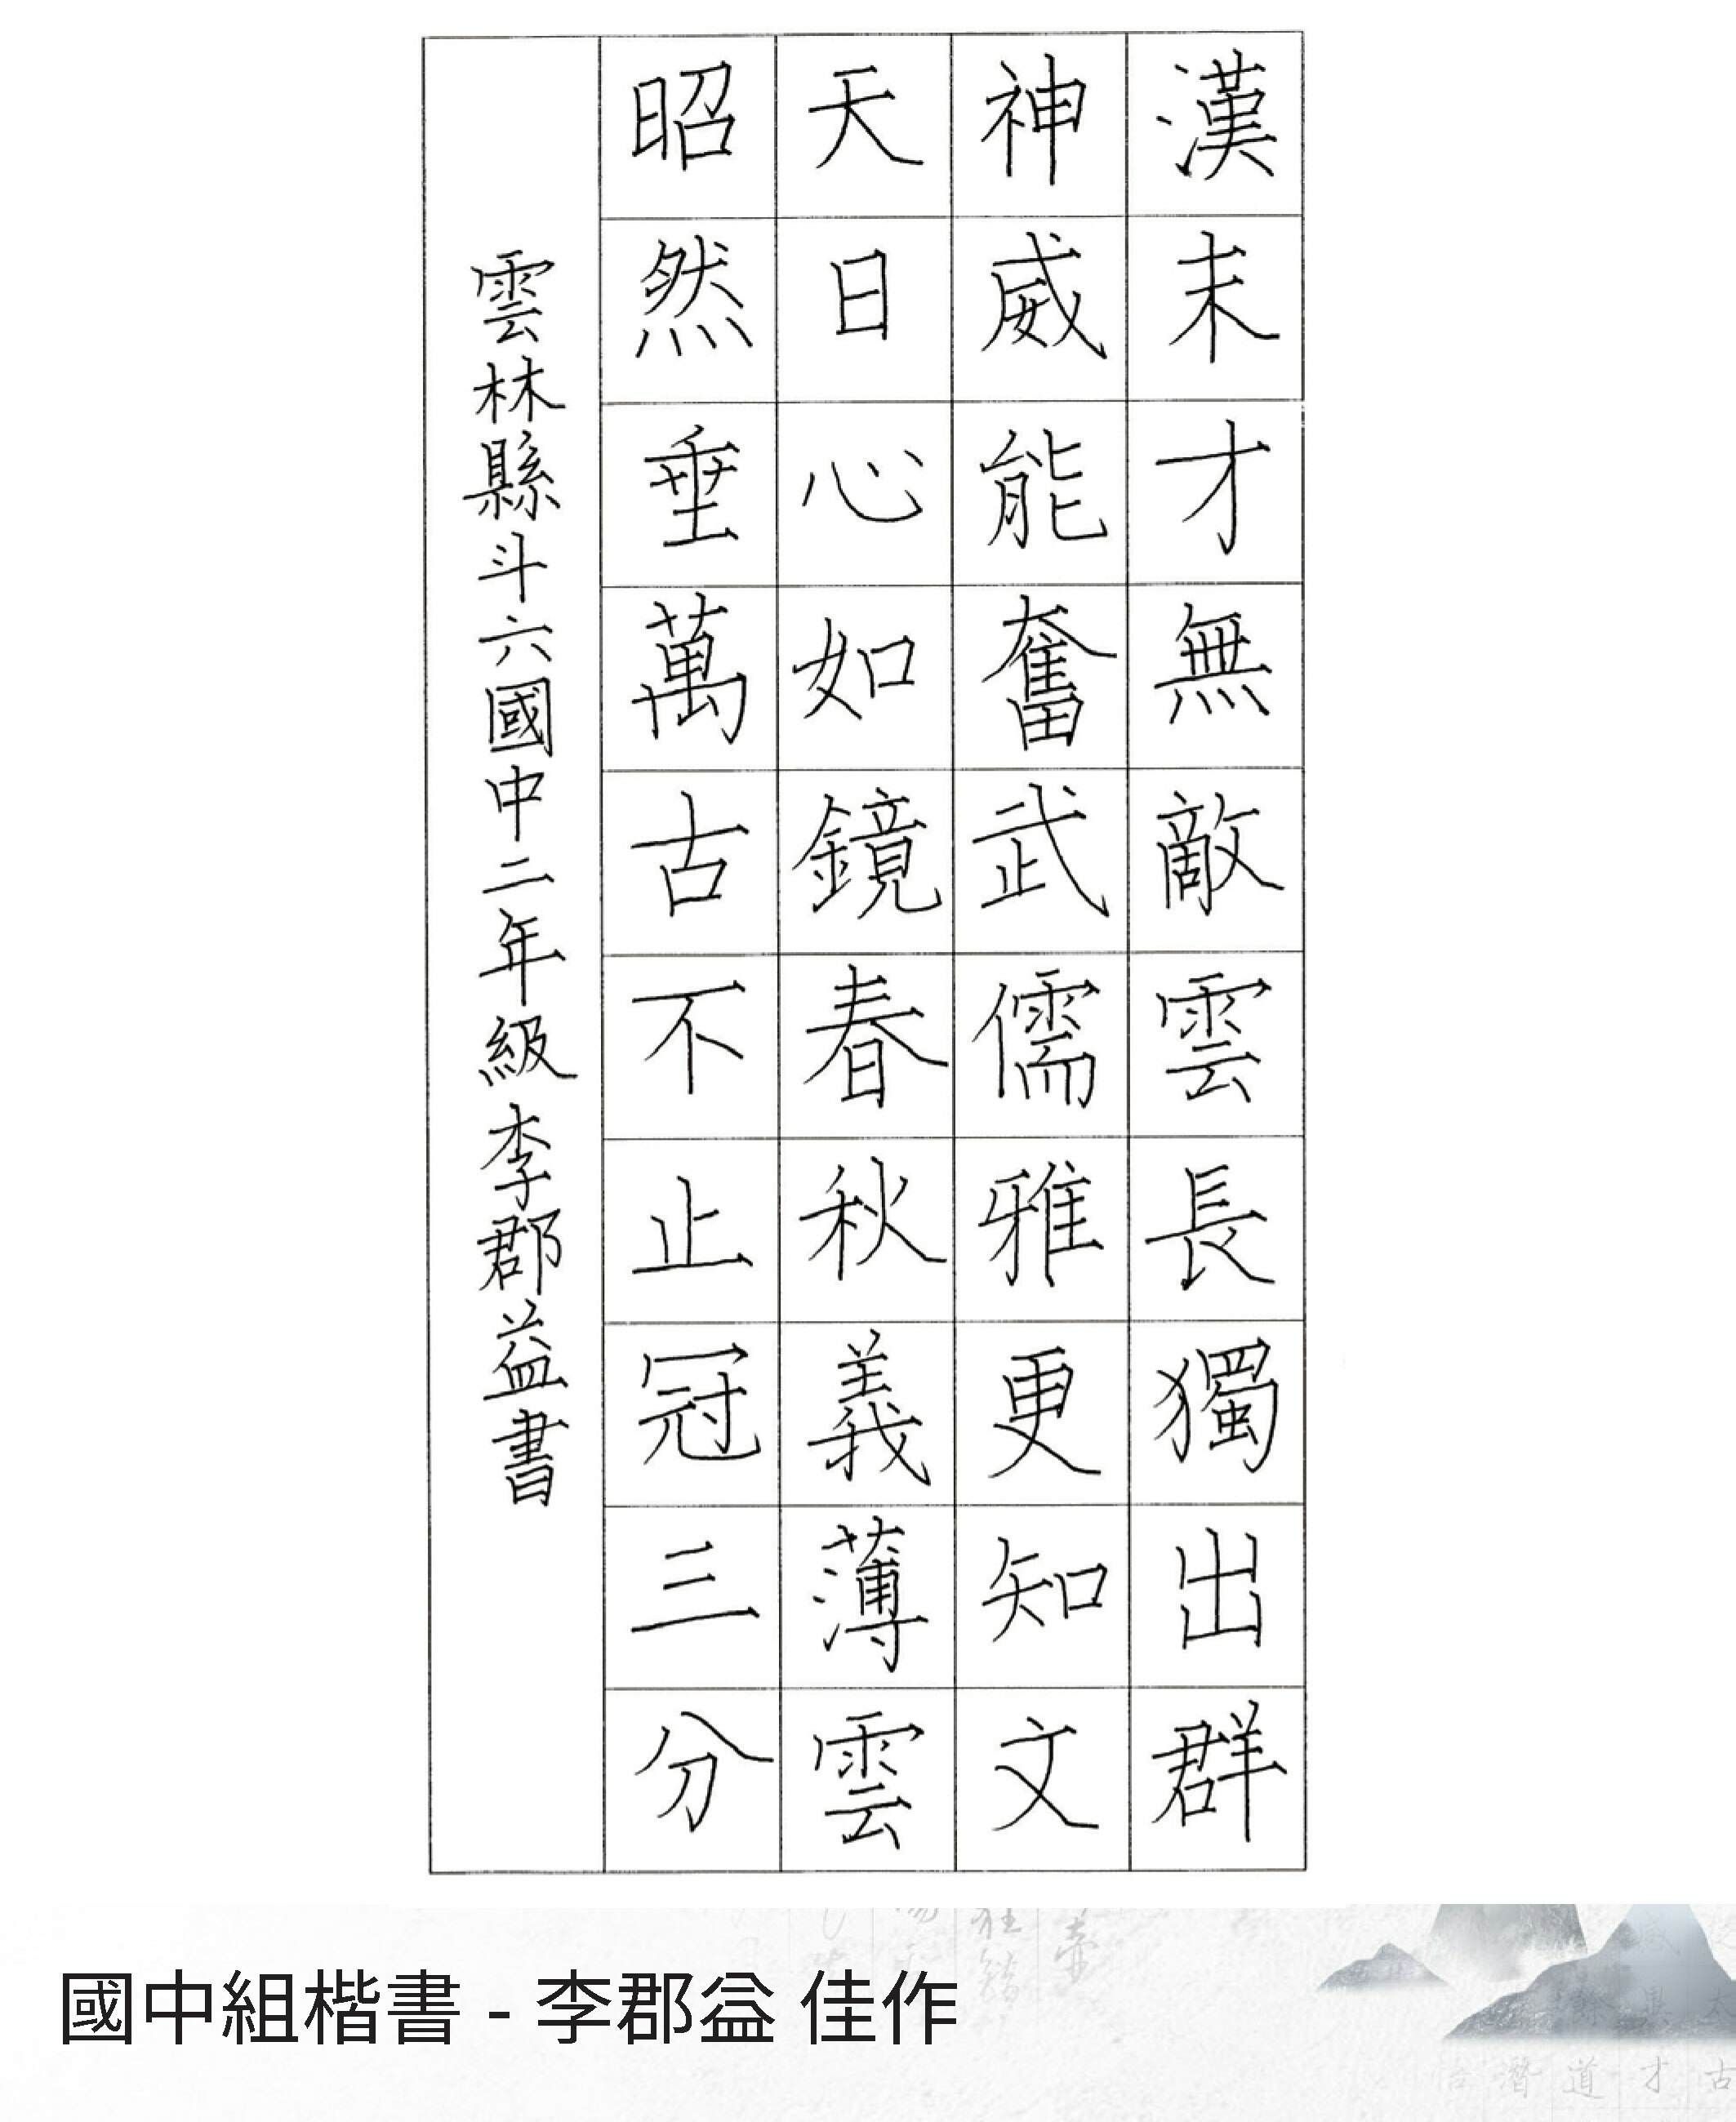 漢末才無敵雲長獨出群
神威能奮武儒雅更知文
天日心如鏡春秋義薄雲
昭然垂萬古不止冠三分
雲林縣斗六國中二年級李郡益書
國中組楷書 - 李郡益 佳作